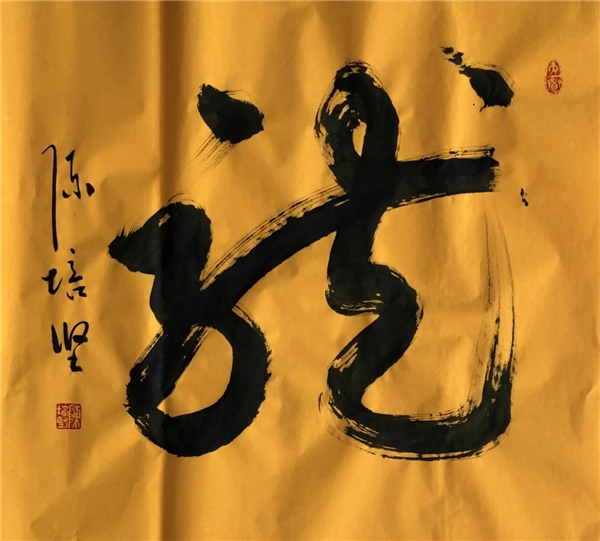 龍
陈培坚